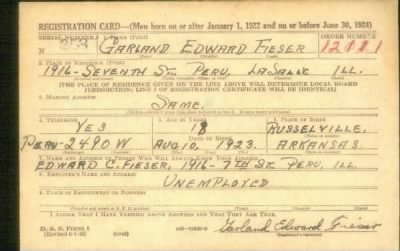 REGISTRATION CARD—(Men born on or after January 1, 1922 and on or before June 30, 1924)
SERIAL NUMBER 1. NAME (Print) ORDER NUMBER
N GARLAND EDWARD FIESER 12121
2. PLACE OF RESIDENCE (Print)
1916-SEVENTH ST. PERU, LASALLE ILL.
[THE PLACE OF RESIDENCE GIVEN ON THE LINE ABOVE WILL DETERMINE LOCAL BOARD
JURISDICTION; LINE 2 OF REGISTRATION CERTIFICATE WILL BE IDENTICAL]
3. MAILING ADDRESS
SAME.
4. TELEPHONE 5. AGE IN YEARS 6. PLACE OF BIRTH
YES 18 RUSSELVILLE,
DATE OF BIRTH
PERU-2490W AUG, 10, 1923. ARKANSAS.
7. NAME AND ADDRESS OF PERSON WHO WILL ALWAYS KNOW YOUR ADDRESS
EDWARD C. FIESER, 1916-7TH ST. PERU, ILL.
8. EMPLOYER'S NAME AND ADDRESS
UNEMPLOYED
9. PLACE OF EMPLOYMENT OR BUSINESS
I AFFIRM THAT I HAVE VERIFIED ABOVE ANSWERS AND THAT THEY ARE TRUE.
D. S. S. FORM 1
(Revised 6-1-42) (over)
Garland Edward Fieser